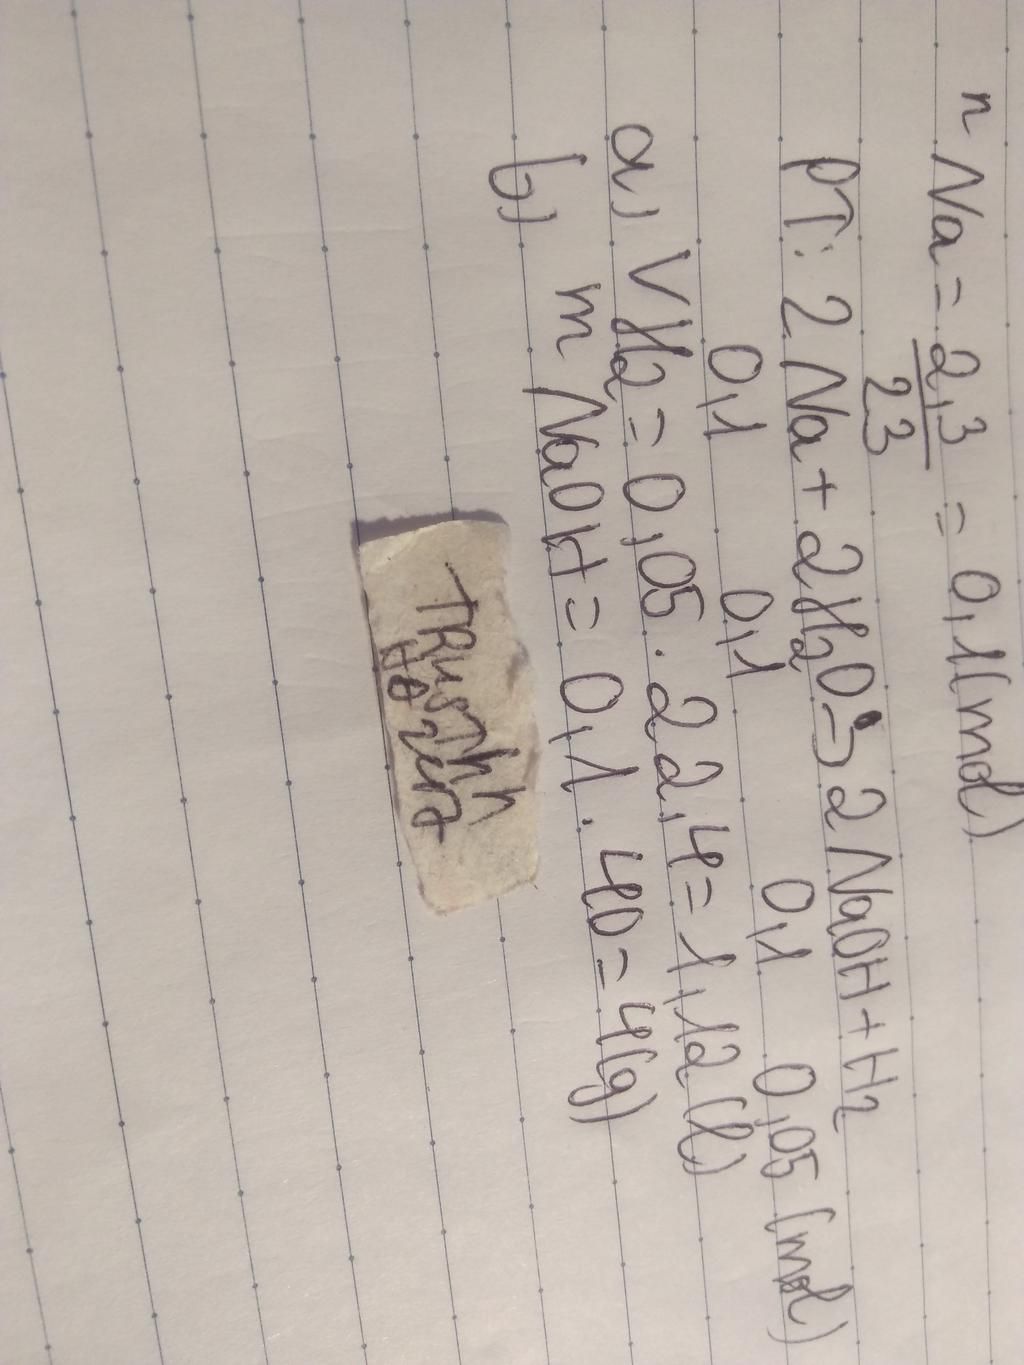 n Na = 2,3 / 23 = 0,1 (mol)
PT: 2 Na + 2H2O → 2 NaOH + H2
0,1 0,1 0,1 0,05 (mol)
a) V H2 = 0,05 . 22,4 = 1,12 (l)
b) m NaOH = 0,1 . 40 = 4 (g)